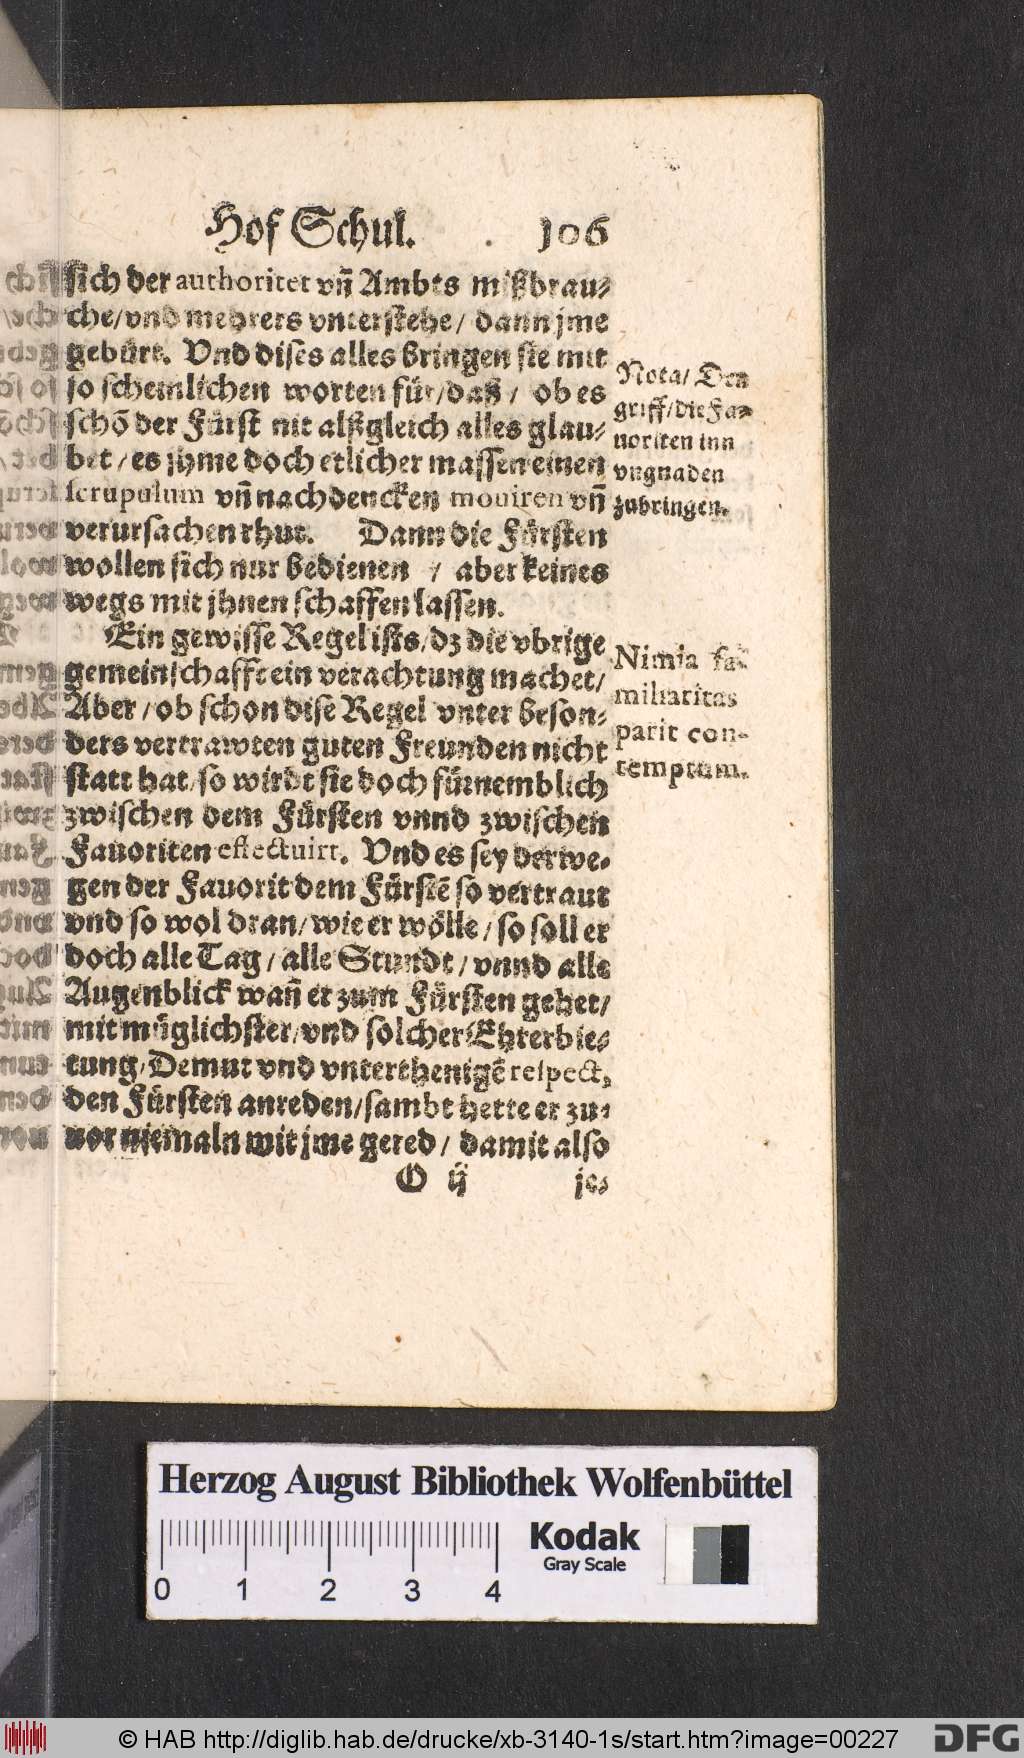 Hof Schul. 106
sich der authoritet vñ Ambts mißbrau-
che/vnd mehrers vnterstehe/ dann jme
gebürt. Vnd dises alles bringen sie mit
so scheinlichen worten für/daß/ ob es
schō der Fürst nit alßgleich alles glau-
bet/es jhme doch etlicher massen einen
scrupulum vñ nachdencken mouiren vñ
verursachen thut. Dann die Fürsten
wollen sich nur bedienen / aber keines
wegs mit jhnen schaffen lassen.
Ein gewisse Regel ists/dz die vbrige
gemeinschafft ein verachtung machet/
Aber/ob schon dise Regel vnter beson-
ders vertrawten guten Freunden nicht
statt hat/so wirdt sie doch fürnemblich
zwischen dem Fürsten vnnd zwischen
Fauoriten effectuirt. Vnd es sey derwe-
gen der Fauorit dem Fürstē so vertraut
vnd so wol dran/wie er wölle/so soll er
doch alle Tag/alle Stundt/vnnd alle
Augenblick wañ er zum Fürsten gehet/
mit müglichster/vnd solcher Ehrerbie-
tung/Demut vnd vnterthenigē respect,
den Fürsten anreden/sambt hette er zu-
uor niemaln mit jme gered/ damit also
O ij je-
Nota/ Den
griff/die Fa-
uoriten inn
vngnaden
zubringen.
Nimia fa-
miliaritas
parit con-
temptum.
Herzog August Bibliothek Wolfenbüttel
Kodak
Gray Scale
0 1 2 3 4
© HAB http://diglib.hab.de/drucke/xb-3140-1s/start.htm?image=00227
DFG